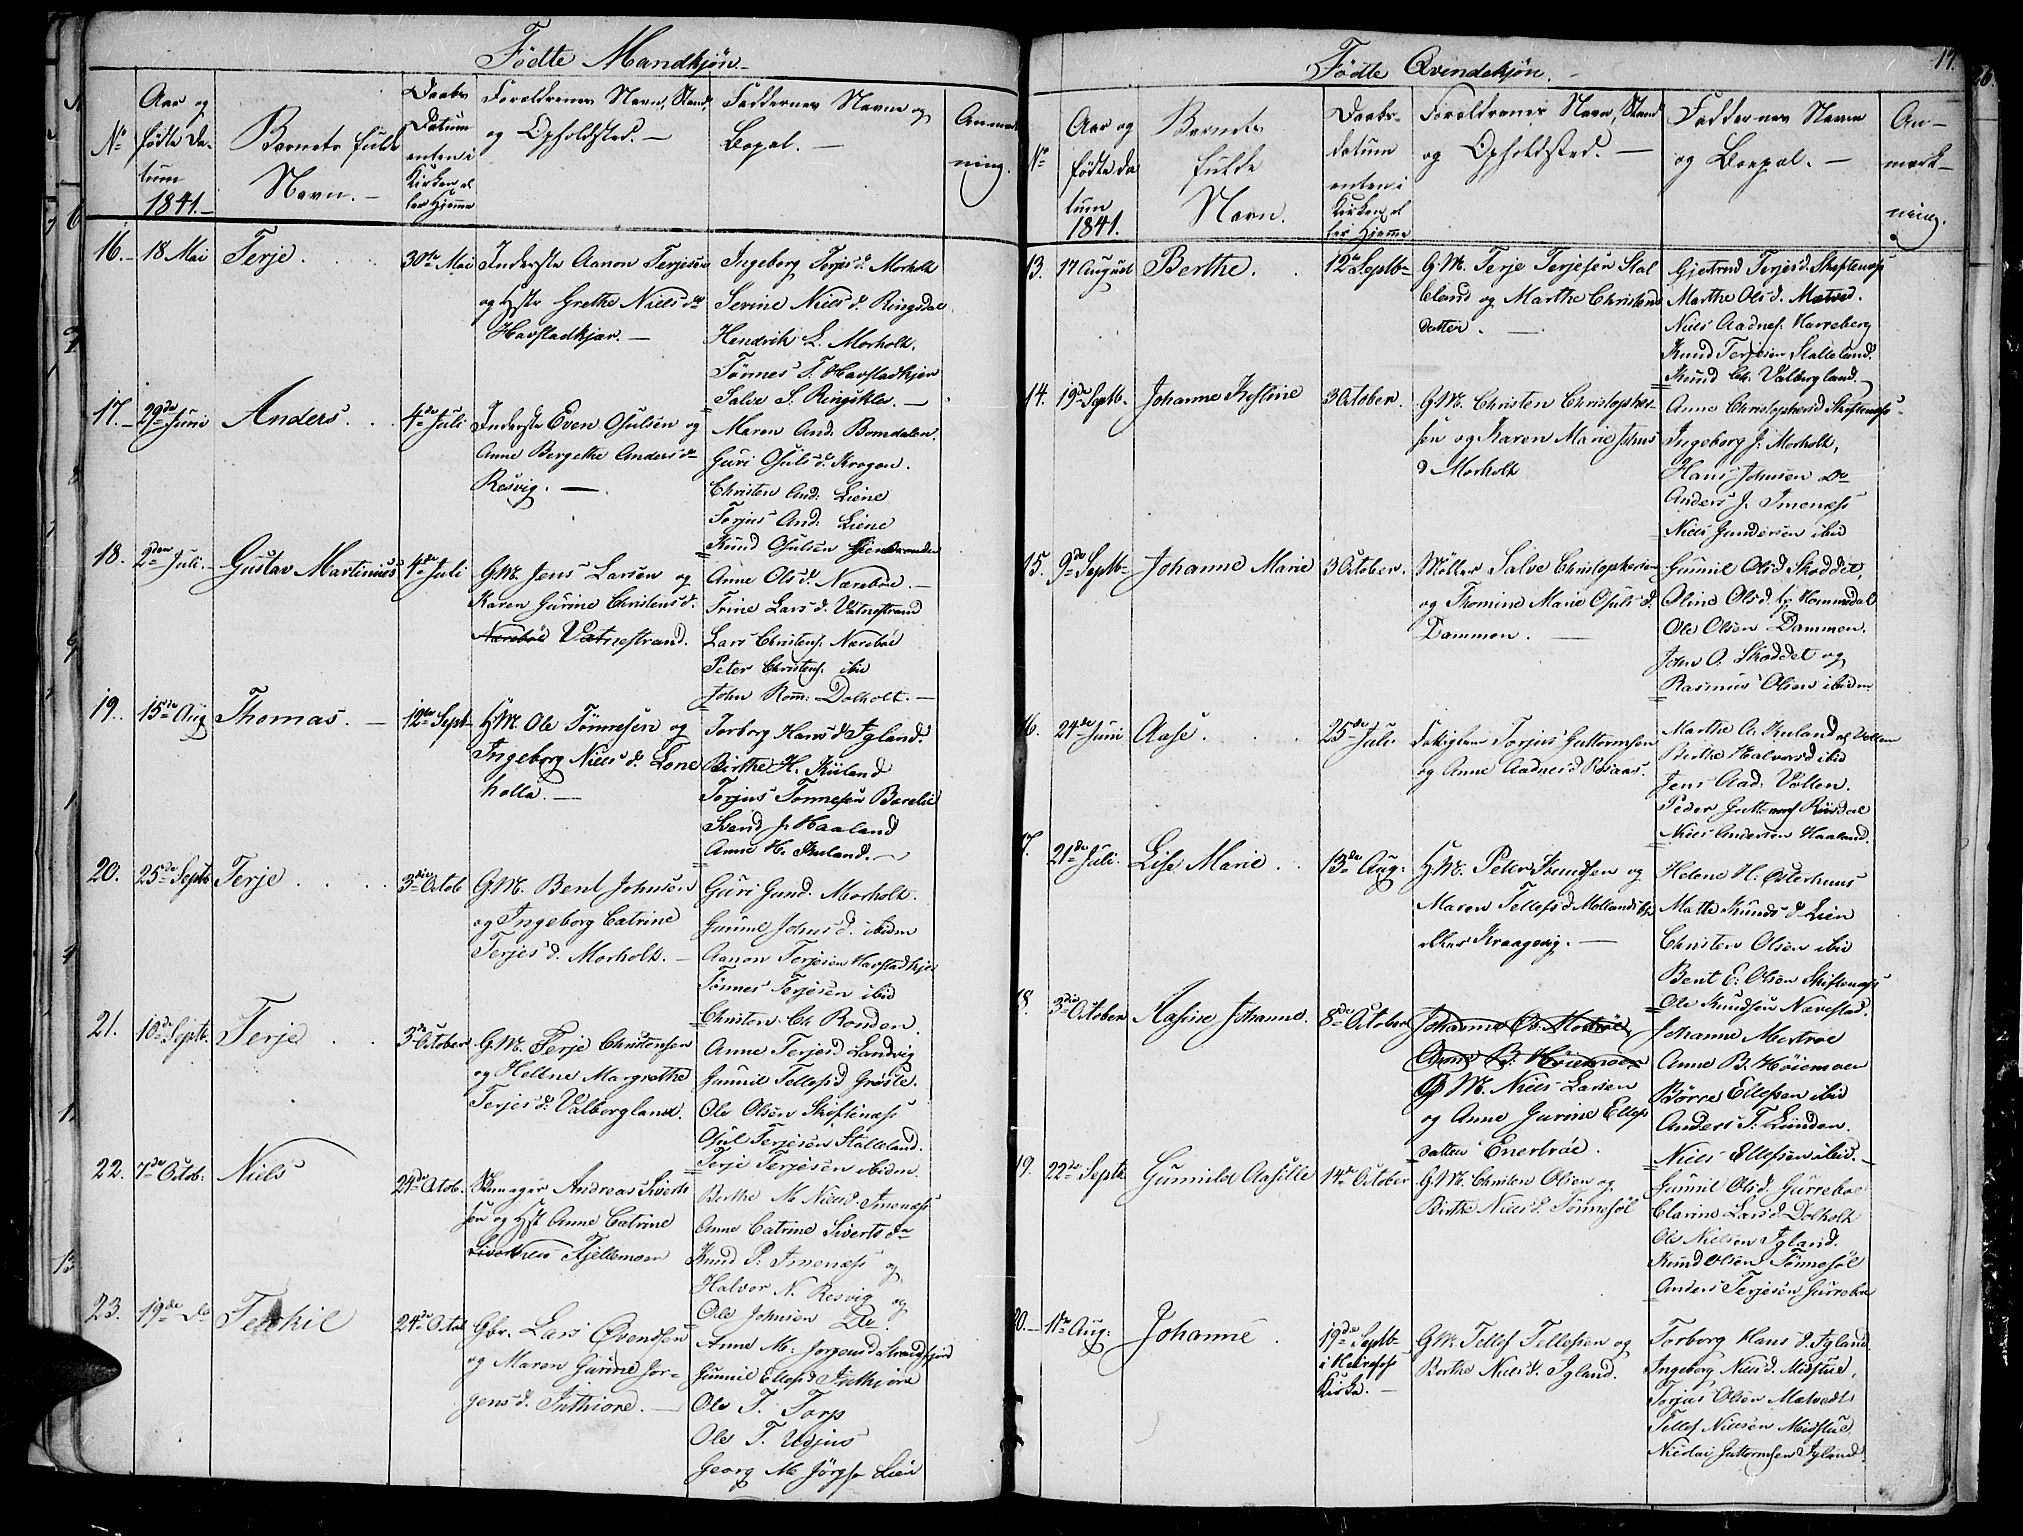 Fødte Mandkjøn
No
Aar og
fødte Da-
tum
1841.
Barnets fulde
Navn.
Daabs
Datum
enten i
Kirken el
ler Hjemme
Forældrenes Navn, Stand
og Opholdsted.
Faddernes Navne og
Bopæl.
Anmærk
ning.
16. 18 Mai Terje. 30te Mai
Inderste Aanon Terjesen
og Hst Grethe Nielsdr
Havstadkjær.
Ingeborg Terjesd. Morholt
Serine Nielsd. Ringsdal
Hendrik L. Morholt.
Tønnes T. Havstadkjær
Salve S. Ringsdal.
17. 29de Juni Anders. 4de Juli
Inderste Even Osulsen og
Anne Bergethe Andersdr
Resvig.
Maren And. Bomdalen.
Guri Osulsd. Krogen.
Christen And: Liene
Torjus And: Liene
Knud Osulsen
18. 2den Juli. Gustav Martinius 4de Juli
GM. Jens Larsen og
Karen Gurine Christensd.
Nærebøe Vatnestrand.
Anne Olsd. Nærebøe.
Trine Larsd. Vatnestrand
Lars Christens. Nærebøe
Peter Christens. ibid
John Rom: Dolholt.
19. 15de Aug Thomas. 12te Sept
HM. Ole Tønnesen og
Ingeborg Nielsd. Lone
holla.
Torborg Hansd. Igland.
Birthe H. Kuland
Torjus Tønnesen Barelie
Svend J. Haaland
Anne H. Kuland.
20. 25de Septb Terje. 3die Octob
GM. Bent Johnsen
og Ingeborg Catrine
Terjesd. Morholt.
Guri Gund. Morholt.
Gunnil Johnsd. ibidm
Aanon Terjesen Havstadkjær
Tønnes Terjesen ibid
Christen Ch. Ronden.
21. 10de Septb. Terje 3die October
GM. Terje Christensen
og Hellene Margrethe
Terjesd. Valbergland.
Anne Terjesd Landvig
Gunnil Tellefsd Grøsle.
Ole Olsen Skiftenæs
Osul Terjesen Stalleland.
Terje Terjesen ibidm.
22. 7de Octob: Niels 24de Octob.
Skomager Andreas Siverts
sen og Hst Anne Catrine
Fjellemoen
Berthe M. Nielsd. Imenæs
Anne Catrine Sivertsdr
Knud P. Imenæs og
Halvor N. Resvig og
Ole Johnsen Do.
23. 19de Do Terkil 24de Octob
Gbr. Lars Øvensen
og Maren Gurine Jør-
gensd. Inthiore.
Anne M. Jørgensd Strandfjord
Gunnil Ellefsd Inthiore
Ole T. Torp
Ole T. Usjus
Georg M. Jørgs. Lien
Fødte Qvindekjøn.
17.
No
Aar og
fødte Da
tum
1841.
Barnets
fulde
Navn.
Daabs-
datum
enten i
Kirken el
ler Hjemme
Forældrenes Navn, Stand
og Opholdsted.
Faddernes Navne
og Bopæl.
An-
mærk-
ning.
13. 17 August Berthe. 12te Septb
G.M. Terje Terjesen Stal
leland og Marthe Christens
datter.
Gjertrud Terjesd. Skiftenæs
Marthe Olsd. Mætved.
Niels Aadnes. Harreberg
Knud Terjesen Stalleland.
Knud Ch. Valbergland.
14. 19de Septb. Johanne Kestine 3 October.
GM. Christen Christopher
sen og Karen Marie Johns
d Morholt
Anne Christophersd Skiftenæs
Ingeborg J. Morholt,
Hans Johnsen Do
Anders J. Imenæs
Niels Gundersen ibid
15. 9de Septb Johanne Marie 3 October.
Møller Salve Christophersen
og Thomine Marie Osulsd.
Dammen.
Gunnil Olsd Skoddet,
Oline Olsd. Hommedal
Ole Olsen Dammen.
John O. Skoddet og
Rasmus Olsen ibidm
16. 24de Juni Aase. 25de Juli
Torjus Guttormsen
og Anne Aadnesd Rosaas.
Marthe A. Kuland og Vollen
Birthe Halvorsd ibid
Jens Aad. Vollen.
Peder Guttorms Riisdal
Niels Andersen Haaland.
17. 21de Juli. Lise Marie. 13de Aug:
HM. Peter Knudsen og
Maren Tellefsd Molland
Kraagevig.
Helene H. Østerhuus
Mathe Knudsd Lien
Christen Olsen ibid
Bent E. Olsen Skiftenæs
Ole Knudsen Nævestad.
18. 3die October Aasine Johanne. 8de October
Johanne Ch. Mostrøe
Anne B. Høiemoen
GM. Niels Larsen
og Anne Gurine Ellefs
datter Enerbøe.
Johanne Mestrøe
Anne B. Høiemoen
Børre Ellefsen ibid
Anders T. Lunden.
Niels Ellefsen ibid.
19. 22de Septb Gunnild Aasille 14de October
GM. Christen Olsen og
Birthe Nielsd. Tønnesøl
Gunnil Olsd. Gurrebøe
Clarine Larsd. Dolholt
Ole Nielsen Igland.
Knud Olsen Tønnesøl
Anders Terjesen Gurrebøe
20. 11te Aug: Johanne. 19de Septb
i Herefoss
Kirke.
GM. Tellef Tellefsen og
Berthe Nielsd. Igland.
Torborg Hansd Igland
Ingeborg Nielsd. Midstue,
Torjus Olsen Mætvedt
Tellef Nielsen Midstue,
Nicolai Guttormsen Igland.